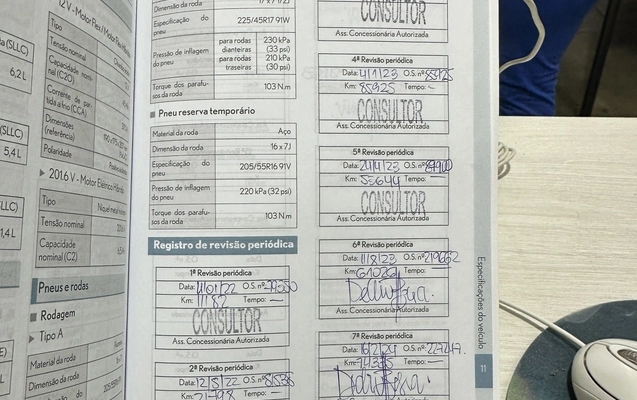 (SLLC)
6,2 L
(SLLC)
5,4 L
(SLLC)
1,4 L
12 V - Motor Flex / Motor
Tipo
Tensão nominal
Capacidade nominal (C20)
Corrente de partida a frio (CCA)
Dimensões (referência)
Polaridade
201.6 V - Motor Elétrico Híbrido
Tipo
Níquel metal
Tensão nominal
Capacidade nominal (C2)
Pneus e rodas
Rodagem
Tipo A
Material da roda
Dimensão da roda
Especificação do pneu
Dimensão da roda
17 x 7 1/2J
Especificação do pneu
225/45R17 91W
Pressão de inflagem do pneu
para rodas dianteiras
230 kPa (33 psi)
para rodas traseiras
210 kPa (30 psi)
Torque dos parafusos da roda
103 N.m
Pneu reserva temporário
Material da roda
Aço
Dimensão da roda
16 x 7J
Especificação do pneu
205/55R16 91V
Pressão de inflagem do pneu
220 kPa (32 psi)
Torque dos parafusos da roda
103 N.m
Registro de revisão periódica
1ª Revisão periódica
Data: O.S. nº
Km: 11182 Tempo:
CONSULTOR
Ass. Concessionária Autorizada
2ª Revisão periódica
Data: 12/5/22 O.S. nº 81536
Km: 21798 Tempo:
CONSULTOR
Ass. Concessionária Autorizada
4ª Revisão periódica
Data: 4/1/23 O.S. nº
Km: Tempo:
CONSULTOR
Ass. Concessionária Autorizada
5ª Revisão periódica
Data: 24/4/23 O.S. nº
Km: 55644 Tempo:
CONSULTOR
Ass. Concessionária Autorizada
6ª Revisão periódica
Data: 11/8/23 O.S. nº 219662
Km: 64026 Tempo:
Ass. Concessionária Autorizada
7ª Revisão periódica
Data: 16/2/24 O.S. nº
Km: 74335 Tempo:
Especificações do veículo
11